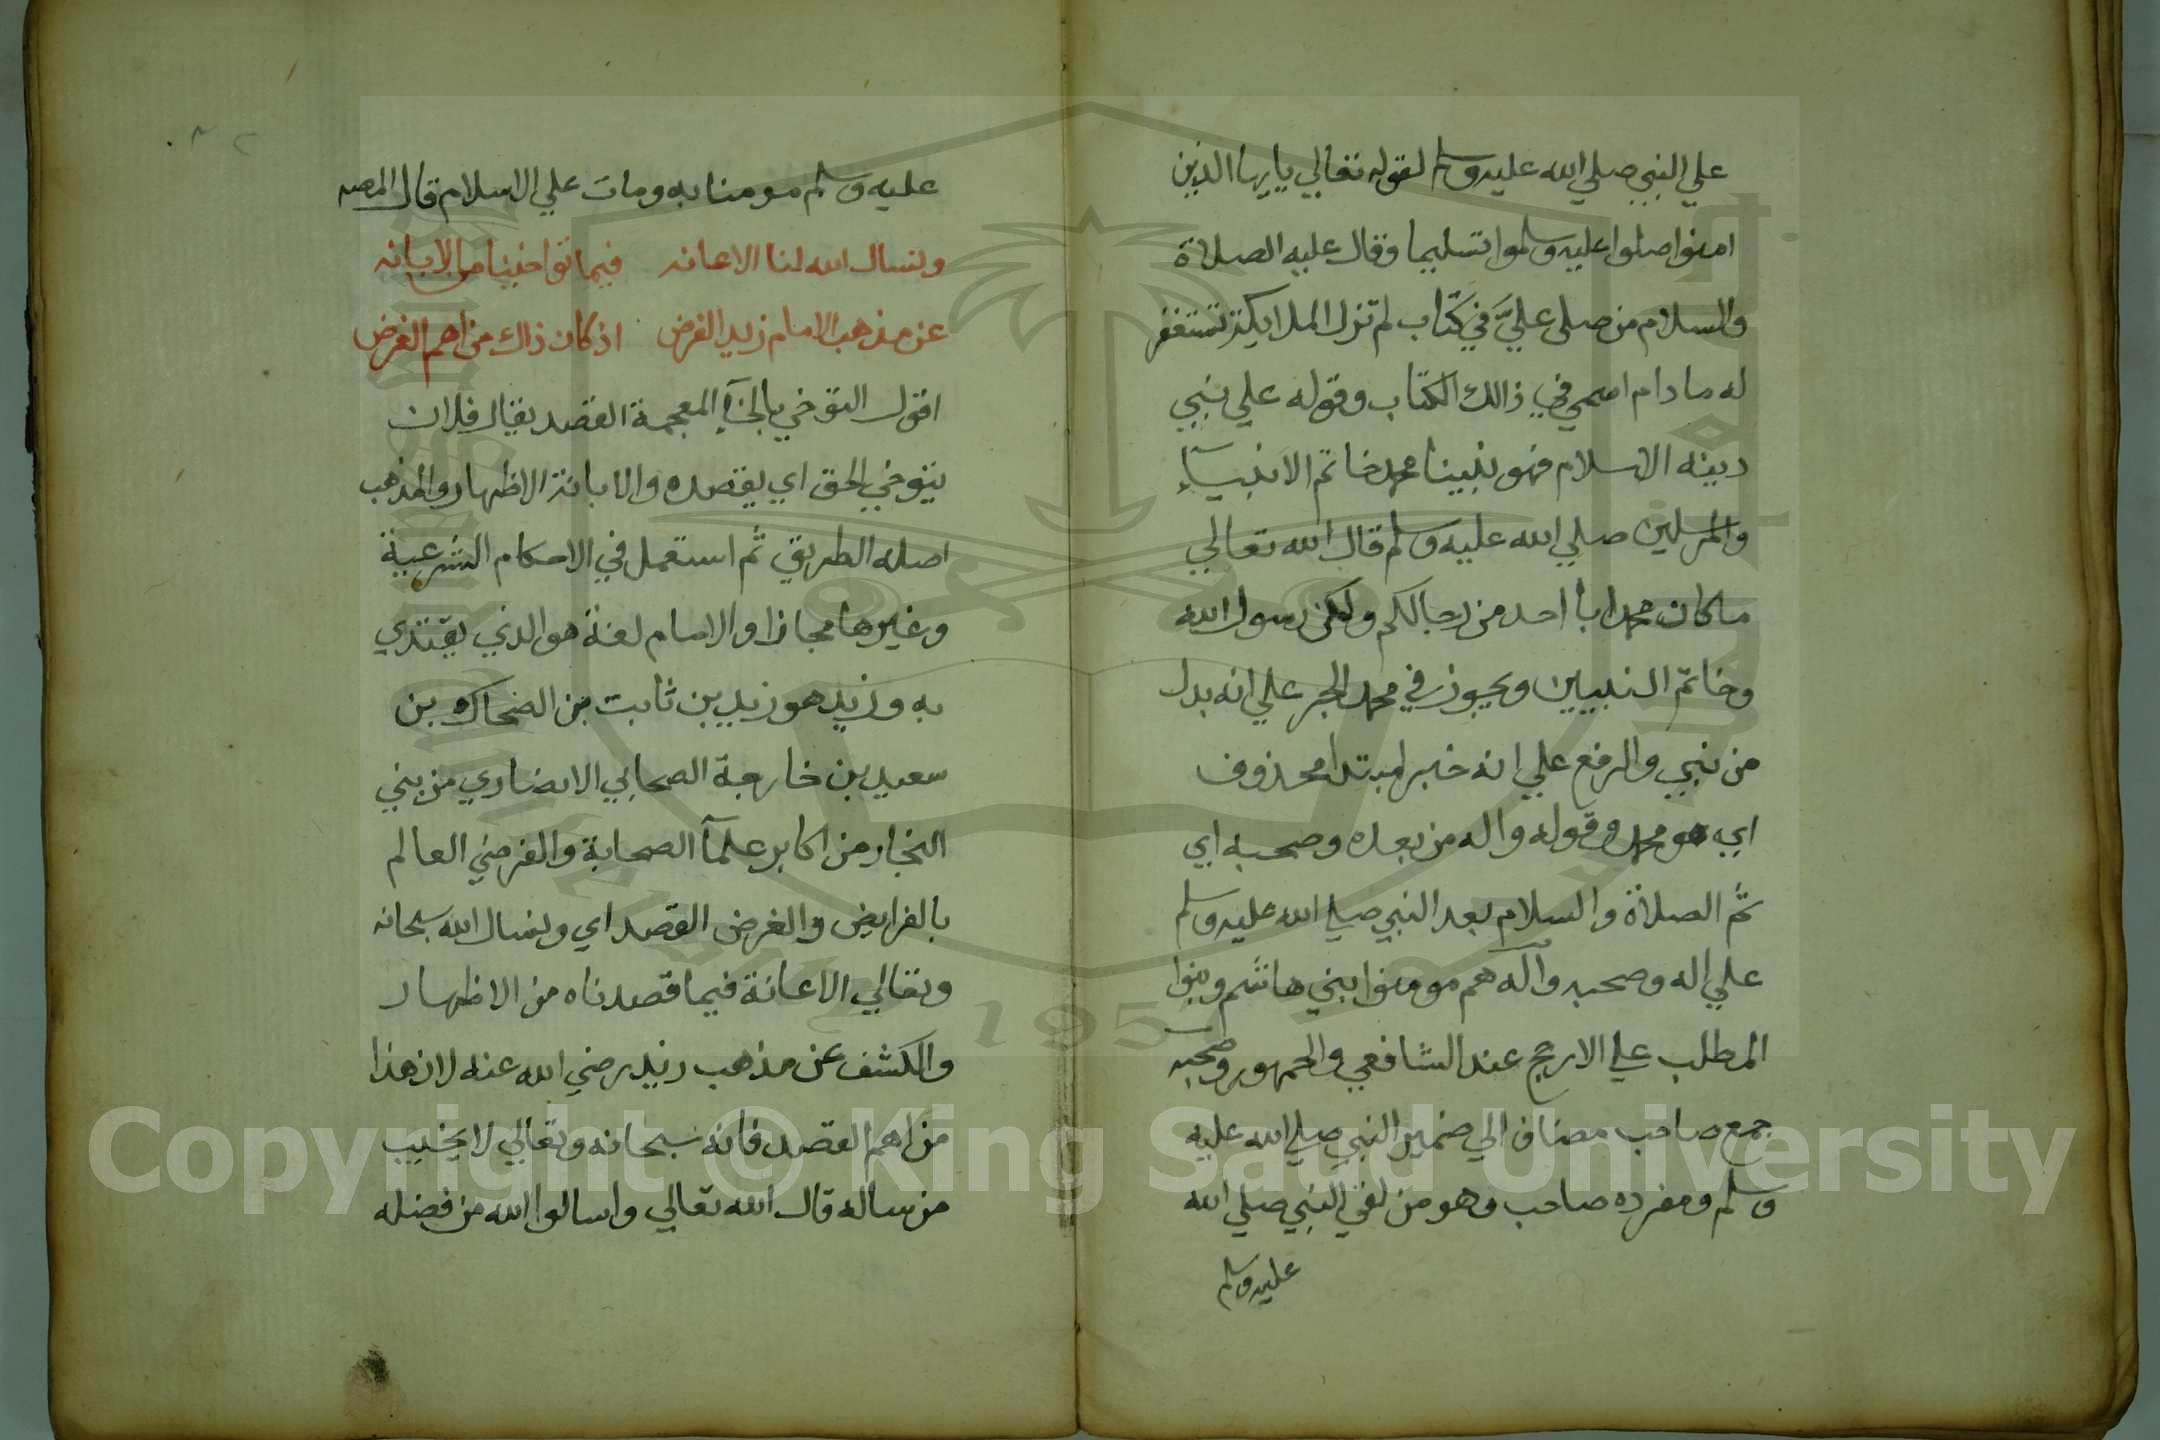 علي النبي صلي الله عليه وسلم لقوله تعالي يا ايها الذين
امنوا صلوا عليه وسلموا تسليما وقال عليه الصلاة
والسلام من صلى عليَّ في كتاب لم تزل الملايكة تستغفر
له مادام اسمي في ذالك الكتاب وقوله علي نبي
دينه الاسلام فهو نبينا محمد خاتم الانبيآء
والمرسلين صلي الله عليه وسلم قال الله تعالي
ماكان محمد ابا احد من رجالكم ولكن رسول الله
وخاتم النبيين ويجوز في محمد الجر علي انه بدل
من نبي والرفع علي انه خبر لمبتدا محذوف
اي هو محمد وقوله واله من بعده وصحبه اي
ثم الصلاة والسلام بعد النبي صلي الله عليه وسلم
علي اله وصحبه وآله هم مومنوا بني هاشم وبنوا
المطلب علي الارجح عند الشافعي والجمهور وصحبه
جمع صاحب مضاف الي ضمير النبي صلي الله عليه
وسلم ومفرده صاحب وهو من لقي النبي صلي الله
عليه وسلم
عليه وسلم مومنا به ومات علي الاسلام قال المصه
ونسال الله لنا الاعانه فيما توخينا من الابانه
عن مذهب الامام زيد الفرض اذ كان ذاك من اهم الغرض
اقول التوخي بالخآء المعجمة القصد يقال فلان
يتوخي الحق اي يقصده والابانة الاظهار والمذهب
اصله الطريق ثم استعمل في الاحكام الشرعية
وغيرها مجازا والامام لغة هو الذي يقتدي
به وزيد هو زيد بن ثابت بن الضحاك بن
سعيد بن خارجة الصحابي الانصاري من بني
النجار من اكابر علمآ الصحابة والفرضي العالم
بالفرايض والغرض القصد اي ونسال الله سبحانه
وتعالي الاعانة فيما قصدناه من الاظهار
والكشف عن مذهب زيد رضي الله عنه لان هذا
من اهم القصد فانه سبحانه وتعالي لا يخيب
من ساله قال الله تعالي واسالوا الله من فضله
Copyright © King Saud University
1957